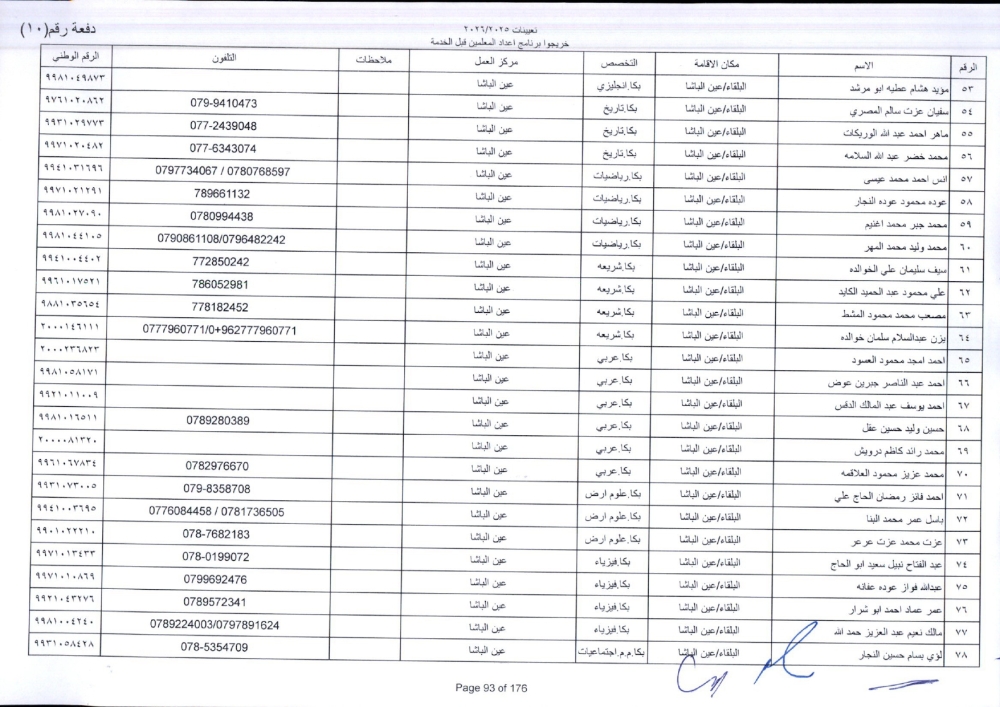 دفعة رقم(١٠)
تعيينات ٢٠٢٦/٢٠٢٥
خريجوا برنامج اعداد المعلمين قبل الخدمة
الرقم الاسم مكان الاقامة التخصص مركز العمل ملاحظات التلفون الرقم الوطني
٥٣ مؤيد هشام عطيه ابو مرشد البلقاء/عين الباشا بكا.انجليزي عين الباشا ٩٩٨١٠٤٩٨٧٣
٥٤ سفيان عزت سالم المصري البلقاء/عين الباشا بكا.تاريخ عين الباشا 079-9410473 ٩٧٦١٠٢٠٨٦٢
٥٥ ماهر احمد عبد الله الوريكات البلقاء/عين الباشا بكا.تاريخ عين الباشا 077-2439048 ٩٩٣١٠٢٩٧٧٣
٥٦ محمد خضر عبد الله السلامه البلقاء/عين الباشا بكا.تاريخ عين الباشا 077-6343074 ٩٩٧١٠٢٠٤٨٢
٥٧ انس احمد محمد عيسى البلقاء/عين الباشا بكا.رياضيات عين الباشا 0797734067 / 0780768597 ٩٩٤١٠٣١٦٩٦
٥٨ عوده محمود عوده النجار البلقاء/عين الباشا بكا.رياضيات عين الباشا 789661132 ٩٩٧١٠٢١٢٩١
٥٩ محمد جبر محمد اغنيم البلقاء/عين الباشا بكا.رياضيات عين الباشا 0780994438 ٩٩٨١٠٢٧٠٩٠
٦٠ محمد وليد محمد المهر البلقاء/عين الباشا بكا.رياضيات عين الباشا 0790861108/0796482242 ٩٩٨١٠٤٤١٠٥
٦١ سيف سليمان علي الخوالده البلقاء/عين الباشا بكا.شريعه عين الباشا 772850242 ٩٩٤١٠٠٤٤٠٢
٦٢ علي محمود عبد الحميد الكايد البلقاء/عين الباشا بكا.شريعه عين الباشا 786052981 ٩٩٦١٠١٧٥٢١
٦٣ مصعب محمد محمود المشط البلقاء/عين الباشا بكا.شريعه عين الباشا 778182452 ٩٨٨١٠٣٥٦٥٤
٦٤ يزن عبدالسلام سلمان خوالده البلقاء/عين الباشا بكا.شريعه عين الباشا 0777960771/0+962777960771 ٢٠٠٠١٤٦١١١
٦٥ احمد امجد محمود العسود البلقاء/عين الباشا بكا.عربي عين الباشا ٢٠٠٠٢٣٦٨٢٣
٦٦ احمد عبد الناصر جبرين عوض البلقاء/عين الباشا بكا.عربي عين الباشا ٩٩٨١٠٥٨١٧١
٦٧ احمد يوسف عبد المالك الدقس البلقاء/عين الباشا بكا.عربي عين الباشا ٩٩٢١٠١١٠٠٩
٦٨ حسين وليد حسين عقل البلقاء/عين الباشا بكا.عربي عين الباشا 0789280389 ٩٩٨١٠١٦٥١١
٦٩ محمد رائد كاظم درويش البلقاء/عين الباشا بكا.عربي عين الباشا ٢٠٠٠٠٨١٣٢٠
٧٠ محمد عزيز محمود العلاقمه البلقاء/عين الباشا بكا.عربي عين الباشا 0782976670 ٩٩٦١٠٦٧٨٣٤
٧١ احمد فائز رمضان الحاج علي البلقاء/عين الباشا بكا.علوم ارض عين الباشا 079-8358708 ٩٩٣١٠٧٣٠٠٥
٧٢ باسل عمر محمد البنا البلقاء/عين الباشا بكا.علوم ارض عين الباشا 0776084458 / 0781736505 ٩٩٤١٠٠٣٦٩٥
٧٣ عزت محمد عزت عرعر البلقاء/عين الباشا بكا.علوم ارض عين الباشا 078-7682183 ٩٩٠١٠٢٢٢١٠
٧٤ عبد الفتاح نبيل سعيد ابو الحاج البلقاء/عين الباشا بكا.فيزياء عين الباشا 078-0199072 ٩٩٧١٠١٣٤٣٣
٧٥ عبدالله فواز عوده عفانه البلقاء/عين الباشا بكا.فيزياء عين الباشا 0799692476 ٩٩٧١٠١٠٨٦٩
٧٦ عمر عماد احمد ابو شرار البلقاء/عين الباشا بكا.فيزياء عين الباشا 0789572341 ٩٩٢١٠٤٣٢٧٦
٧٧ مالك نعيم عبد العزيز حمد الله البلقاء/عين الباشا بكا.فيزياء عين الباشا 0789224003/0797891624 ٩٩٨١٠٠٤٢٤٠
٧٨ لؤي بسام حسين النجار البلقاء/عين الباشا بكا.م.م.اجتماعيات عين الباشا 078-5354709 ٩٩٣١٠٥٨٤٢٨
Page 93 of 176